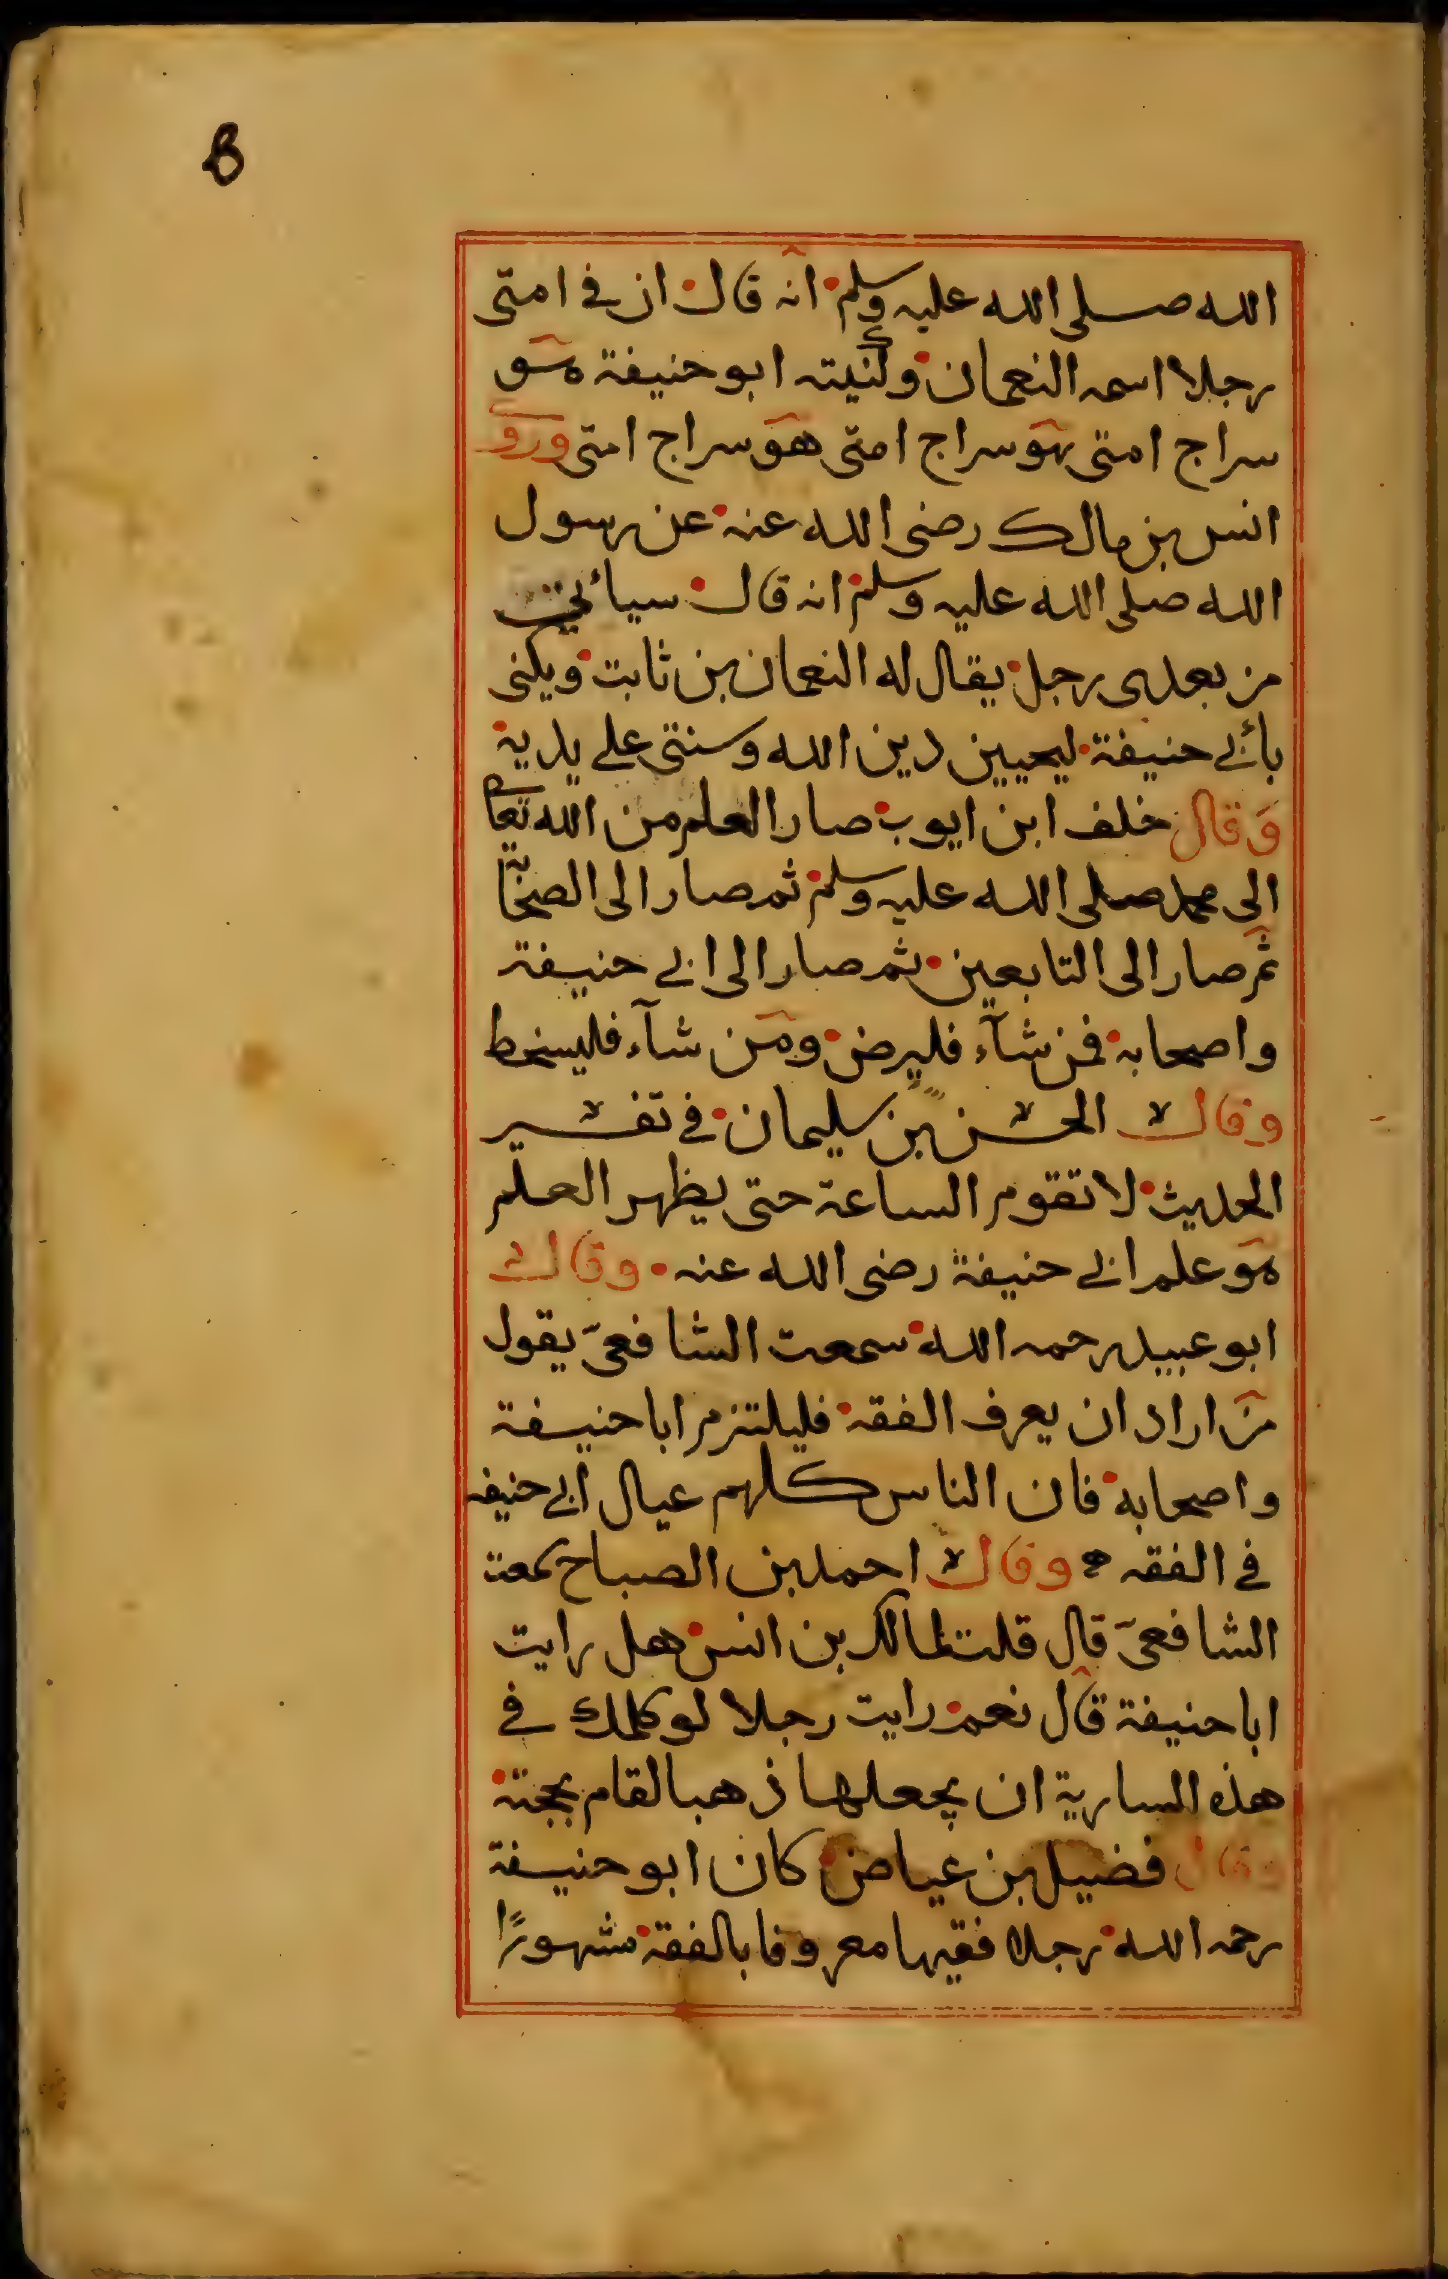 الله صلى الله عليه وسلم انه قال ان في امتى
رجلا اسمه النعمان وكنيته ابو حنيفة هو
سراج امتى هو سراج امتى هو سراج امتى وروى
انس بن مالك رضى الله عنه عن رسول
الله صلى الله عليه وسلم انه قال سيأتي
من بعدى رجل يقال له النعمان بن ثابت ويكنى
بأبي حنيفة ليحيين دين الله وسنتى على يديه
وقال خلف ابن ايوب صار العلم من الله تعالى
الى محمد صلى الله عليه وسلم ثم صار الى الصحابة
ثم صار الى التابعين ثم صار الى ابي حنيفة
واصحابه فمن شآء فليرض ومن شآء فليسخط
وقال الحسن بن سليمان في تفسير
الحديث لا تقوم الساعة حتى يظهر العلم
هو علم ابي حنيفة رضى الله عنه وقال
ابو عبيد رحمه الله سمعت الشافعى يقول
من اراد ان يعرف الفقه فليلتزم ابا حنيفة
واصحابه فان الناس كلهم عيال ابي حنيفه
في الفقه وقال احمد بن الصباح سمعت
الشافعى قال قلت لمالك بن انس هل رايت
ابا حنيفة قال نعم رايت رجلا لو كلمك في
هذه السارية ان يجعلها ذهبا لقام بحجته
وقال فضيل بن عياض كان ابو حنيفة
رحمه الله رجلا فقيها معروفا بالفقه مشهورًا